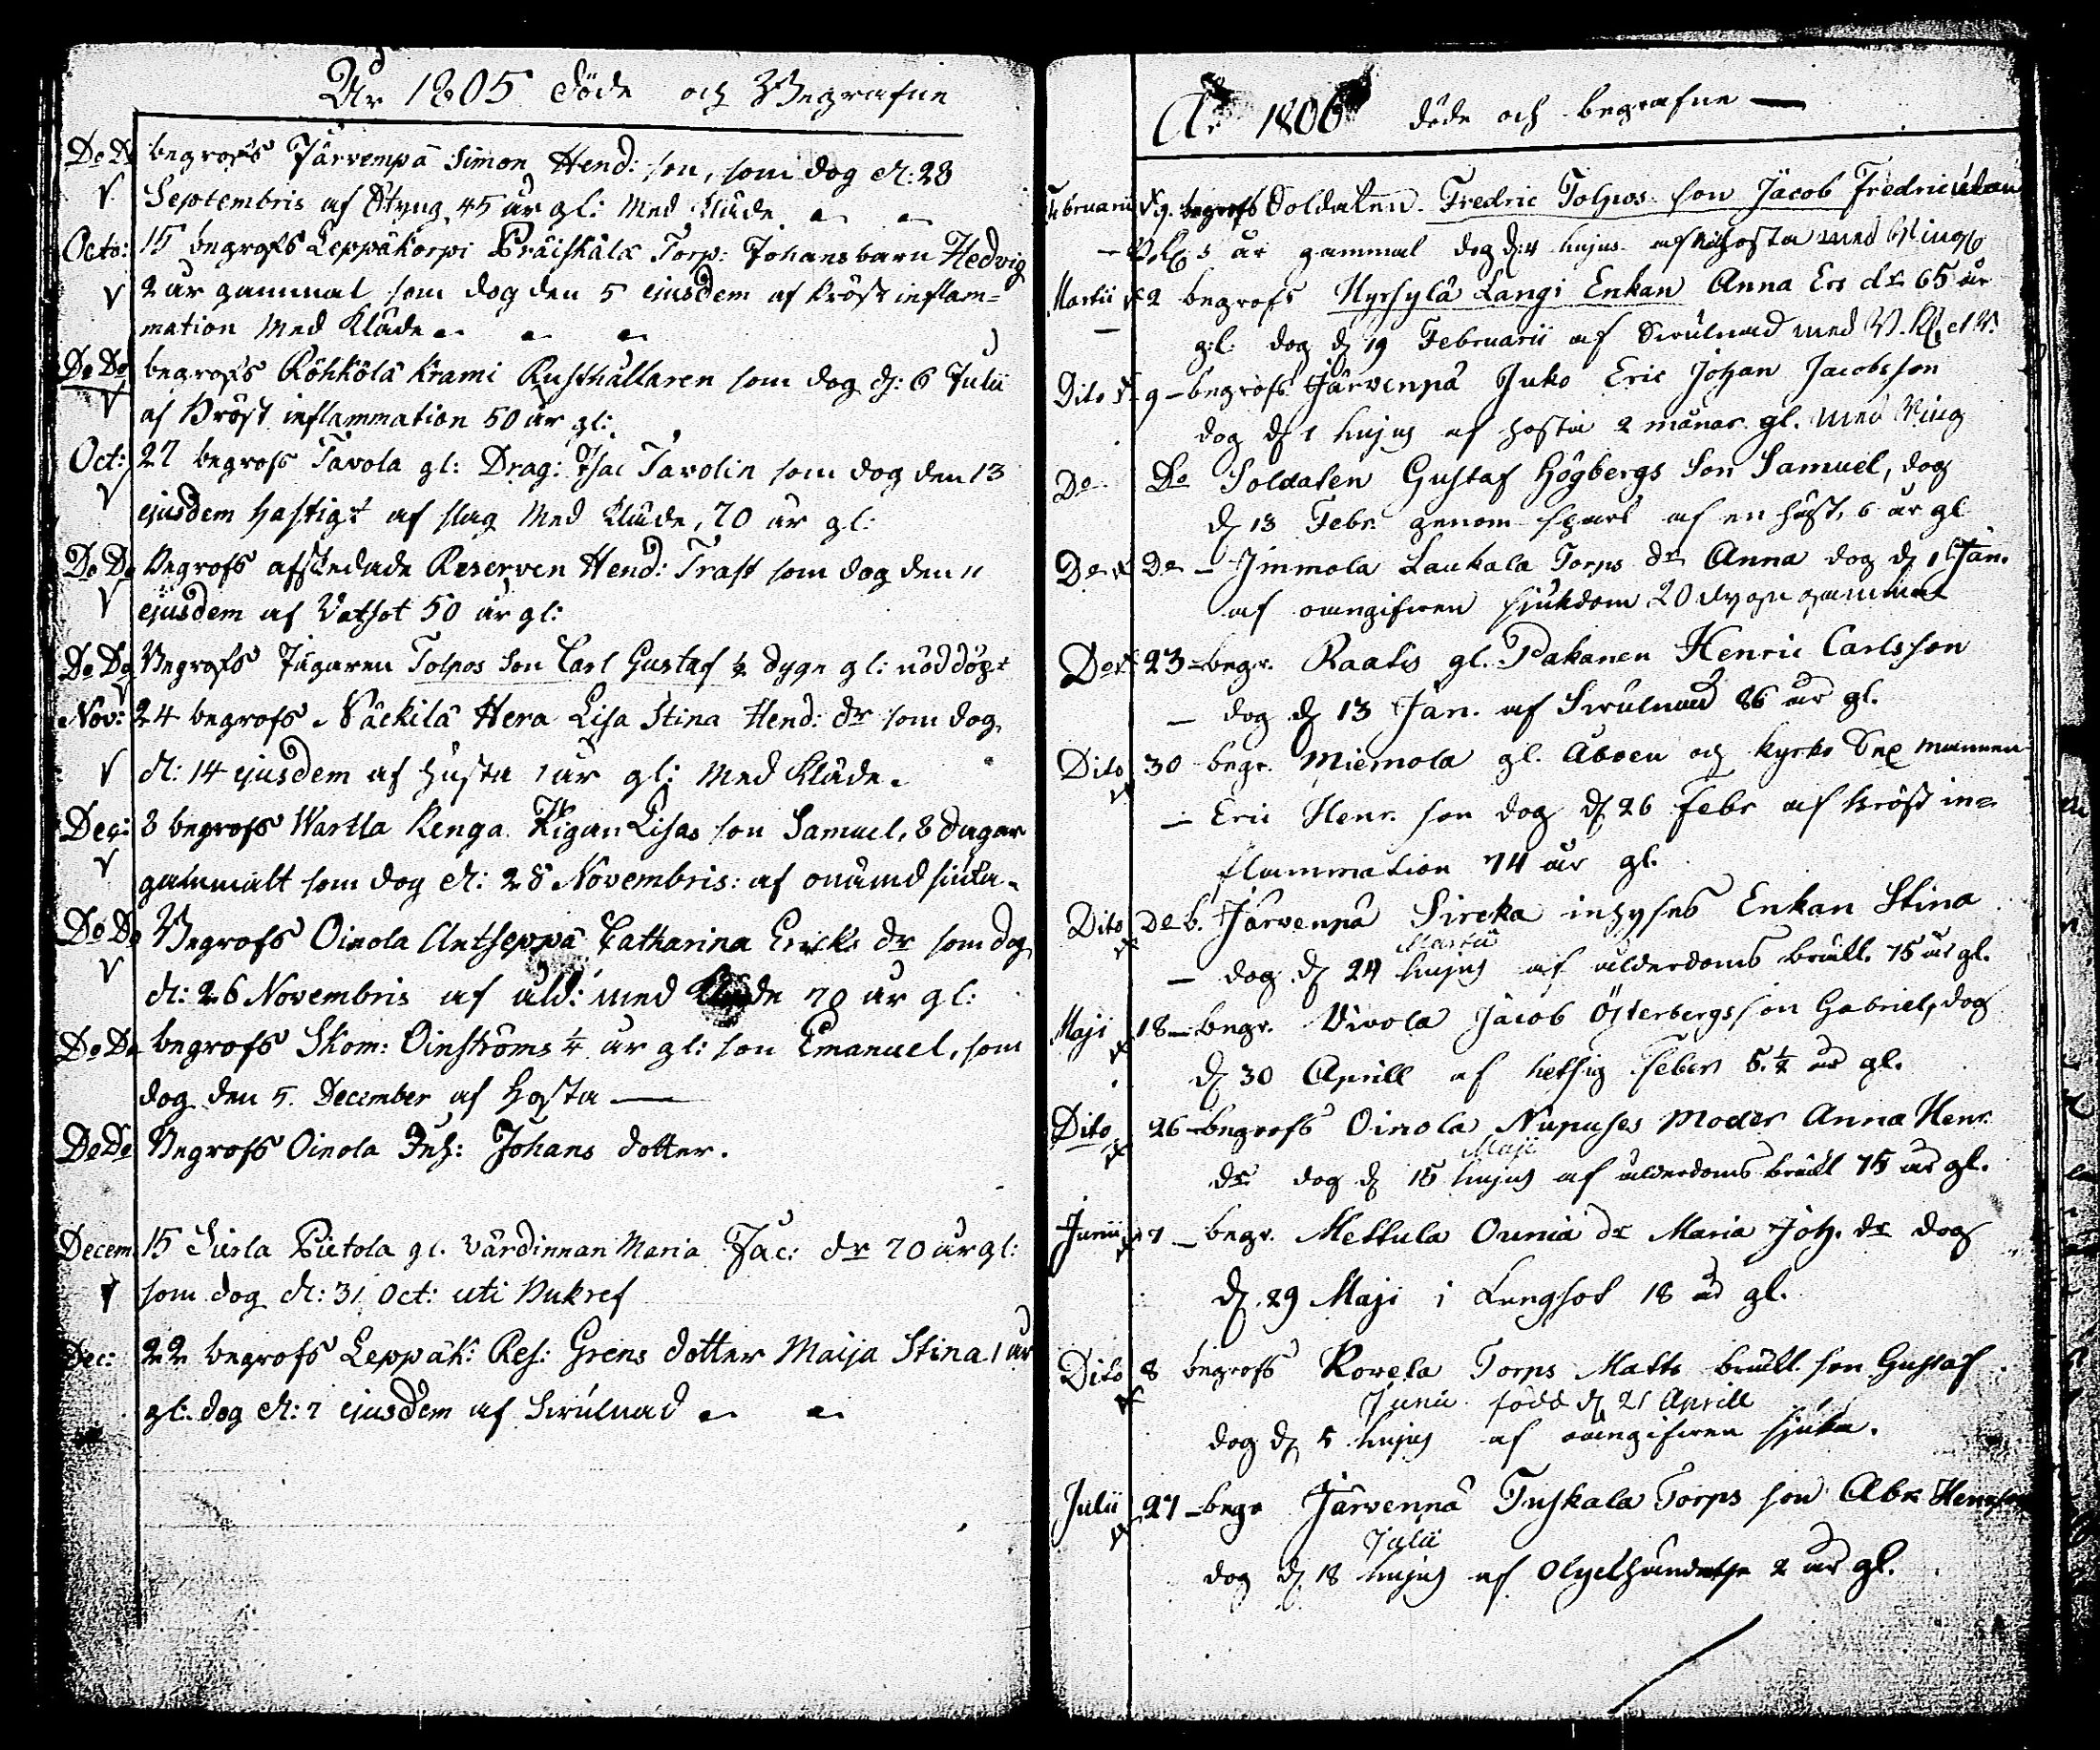 År 1805 döde och Begrafne
Do Do begrofs Järvempä Simon Hend: son, som dog d: 28
Septembris af Styng 45 år gl: Med Kläde
Octo: 15 begrofs Leppäkorpi Präiskälä Torp: Johans barn Hedvig
2 år gammal som dog den 5 ejusdem af bröst inflam=
mation Med Kläde
Do Do begrofs Röhkölä Krami Rusthållaren som dog d: 6 Julii
af Bröst inflammation 50 år gl:
Oct: 27 begrofs Tavola gl: Drag: Isac Tavolin som dog den 13
ejusdem hastigt af slag Med Kläde, 70 år gl:
Do Do Begrofs afskedade Reserven Hend: Trast som dog den 11
ejusdem af Vatsot 50 år gl:
Do Do Begrofs Jägaren Tolpos Son Carl Gustaf ½ dygn gl: nöddöpt
Nov: 24 begrofs Näckilä Hera Lisa Stina Hend: dr som dog
d: 14 ejusdem af husta 1 år gl: Med Kläde.
Dec: 8 begrofs Wartla Renga Pigan Lisas son Samuel, 8 dagar
gammalt som dog d: 28 Novembris: af onämd siuka.
Do Do Begrofs Oinola Antseppä Catharina Ericks dr som dog
d: 26 Novembris af åld: med Kläde 70 år gl:
Do Do begrofs Skom: Oinströms ¼ år gl: son Emanuel, som
dog den 5 December af Hosta
Do Do Begrofs Oinola Inh: Johans dotter.
Decem: 15 Sierla Pietola gl. värdinnan Maria Jac: dr 70 år gl:
som dog d: 31 Oct: uti Bukref
Dec: 22 begrofs Leppäk: Res: Grens dotter Maija Stina 1 år
gl: dog d: 7 ejusdem af Swulnad
År 1806 döde och begrafne
Februarii 9. begrofs Soldaten Fredric Tolpos son Jacob Fredric
5 år gammal dog d: 4 hujus af hosta med Ring
Martii 2 begrofs Hyrsylä Langi Enkan Anna Ers dr 65 år
gl: dog d 19 Februarii af Swulnad med
Dito 9 begrofs Järvenpä Juko Eric Johan Jacobsson
dog d 1 hujus af hosta 2 månar. gl. med Ring
Do Do Soldaten Gustaf Högbergs Son Samuel, dog
d 13 Febr genom spark af en häst, 6 år gl
Do Do Immola Laukala Torps dr Anna dog d 1 Jan.
af oangifwen sjukdom 20 dygn gammal
Do 23 begr. Raatis gl. Pakanen Henric Carlsson
dog d 13 Jan. af Swulnad 86 år gl.
Dito 30 begr. Miemola gl. Åboen och kyrko Sex mannen
Eric Henr. son dog d 26 Febr af bröst in=
flammation 74 år gl.
Dito De b. Järvenpä Sircka inhyses Enkan Stina
Martii
dog d 24 hujus af ålderdoms bräkl. 75 år gl.
Maji 18 begr. Uivola Jacob Österbergs son Gabriel, dog
d 30 Aprill af hetsig feber 5.½ år gl.
Dito 26 begrofs Oinola Nupuses Moder Anna Henr.
Maji
dr dog d 15 hujus af ålderdoms bräkl 75 år gl.
Junii 7 begr. Mettula Ounia dr Maria Joh. dr dog
d. 29 Maji i Lungsot 18 år gl.
Dito 8 begrofs Rovela Torps Matts bräkl son Gustaf
Junii född d 21 Aprill
dog d 5 hujus af oangifwen sjuka.
Julii 27 begr Järvenpä Tuskala Torps son Abr. Henrsson
Julii
dog d. 18 hujus af Olyckshändelse 2 år gl.